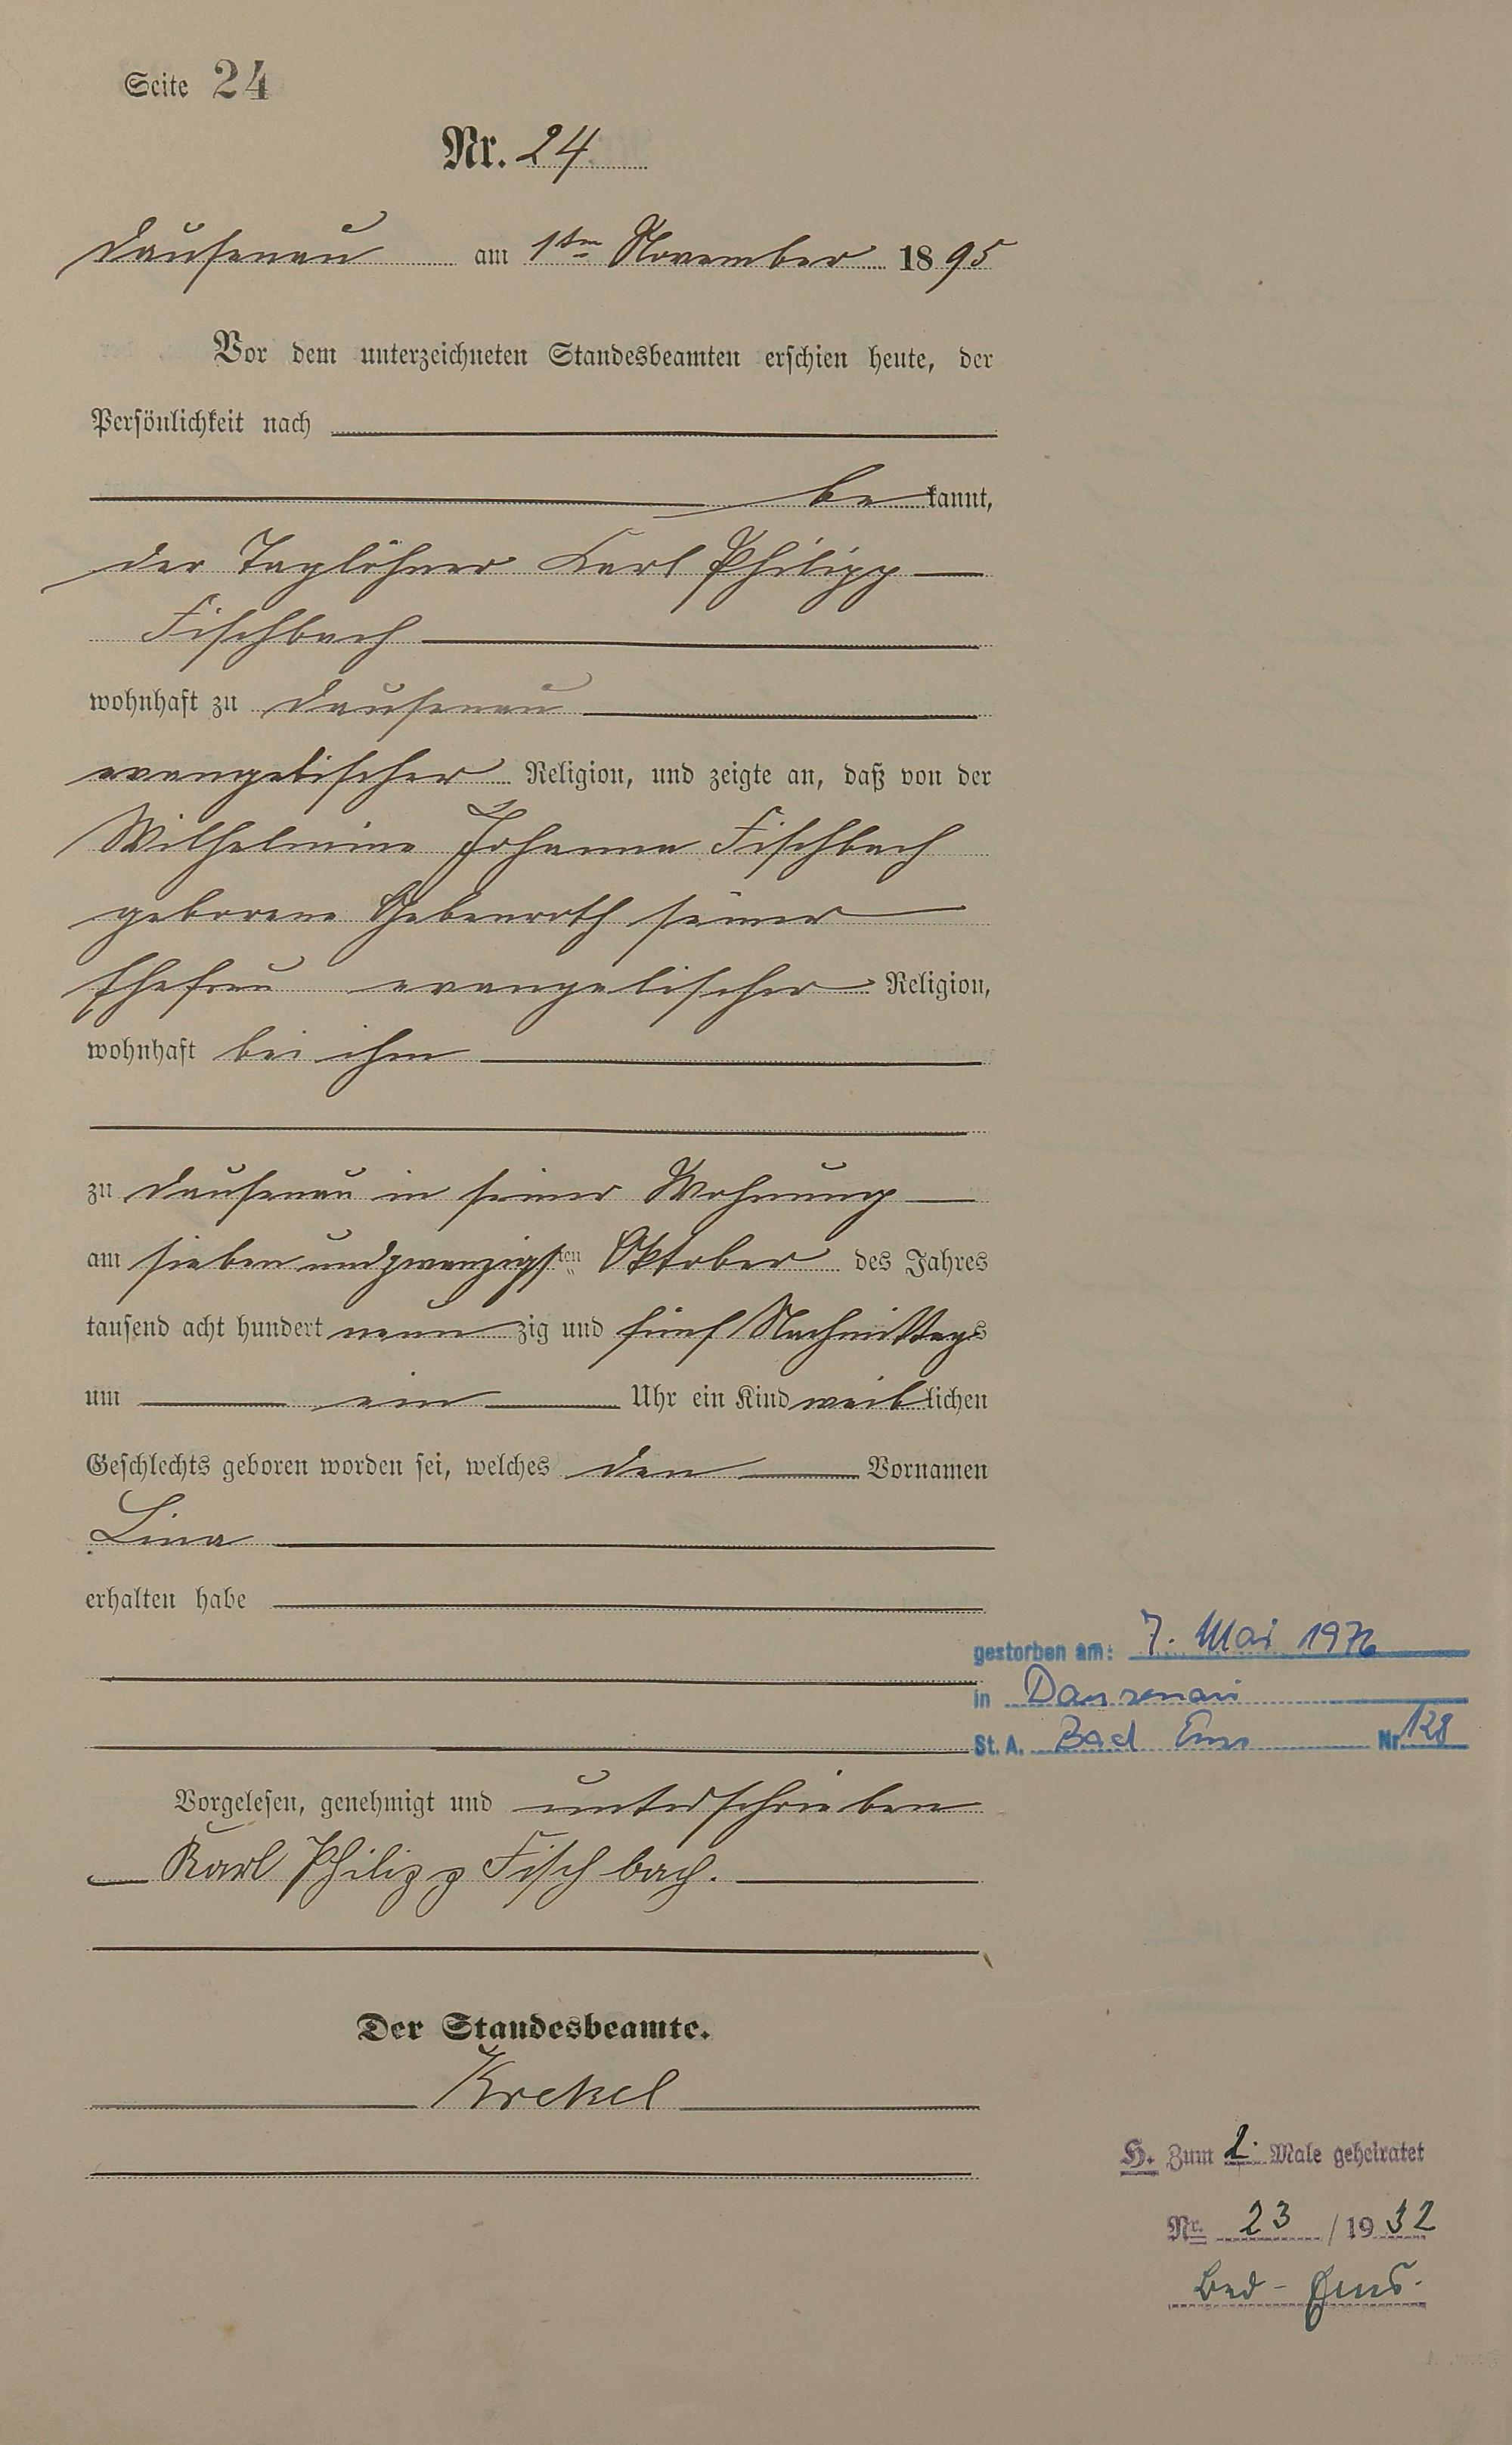 Seite 24
Nr. 24
Dausenau am 1ten November 1895
Vor dem unterzeichneten Standesbeamten erschien heute, der
Persönlichkeit nach
bekannt,
der Taglöhner Karl Philipp
Fischbach
wohnhaft zu Dausenau
evangelischer Religion, und zeigte an, daß von der
Wilhelmine Johanna Fischbach
geborene Gebenroth seiner
Ehefrau evangelischer Religion,
wohnhaft bei ihm
zu Dausenau in seiner Wohnung
am sieben undzwanzigsten Oktober des Jahres
tausend acht hundert neunzig und fünf Nachmittags
um ein Uhr ein Kind weiblichen
Geschlechts geboren worden sei, welches den Vornamen
Lina
erhalten habe
gestorben am: 7. Mai 1976
in Dausenau
St. A. Bad Ems Nr. 128
Vorgelesen, genehmigt und unterschrieben
Karl Philipp Fischbach.
Der Standesbeamte.
Krekel
H. Zum Male geheiratet
Nr. 23 / 1932
Bad-Ems.